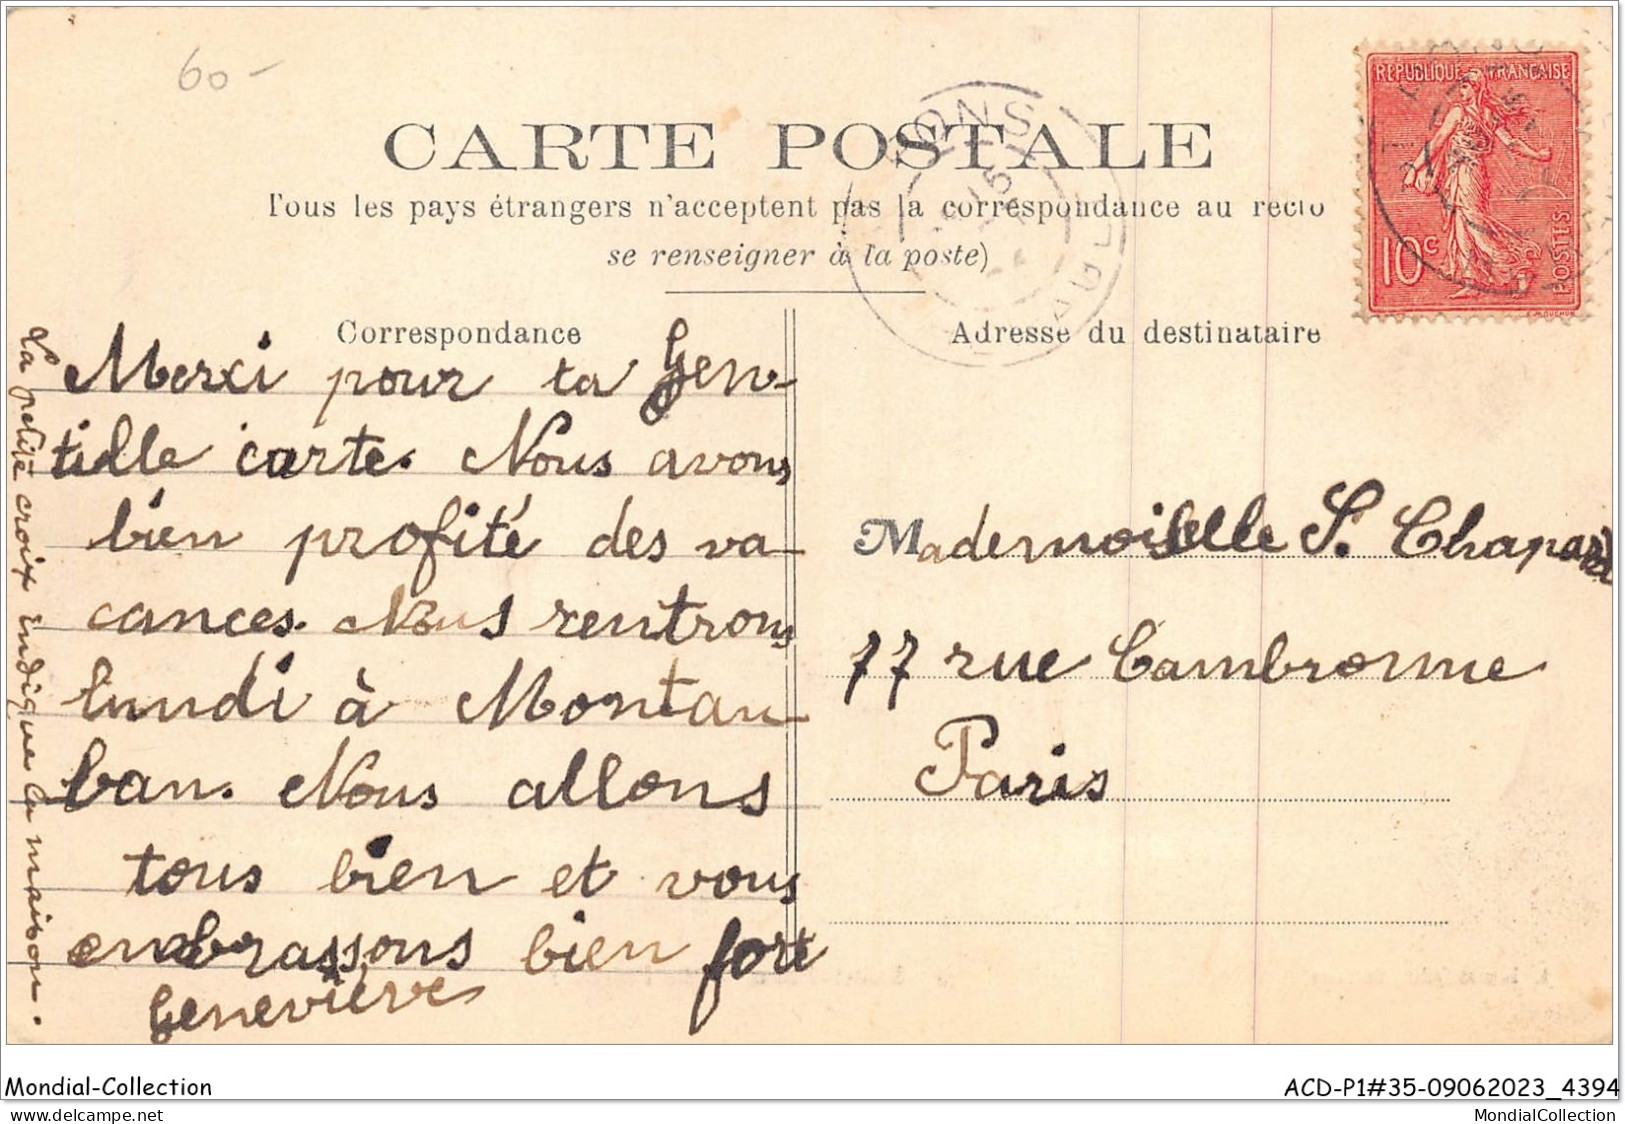 60-
CARTE POSTALE
Tous les pays étrangers n'acceptent pas la correspondance au recto
se renseigner à la poste)
Correspondance
Merci pour ta gen-
tille carte. Nous avons
bien profité des va-
cances. Nous rentrons
lundi à Montau-
ban. Nous allons
tous bien et vous
embrassons bien fort
Geneviève
La petite croix indique la maison.
REPUBLIQUE FRANCAISE
10c
POSTES
PONS
Adresse du destinataire
Mademoiselle S. Chapard
77 rue Cambronne
Paris
Mondial-Collection
ACD-P1#35-09062023_4394
delcampe.net
MondialCollection